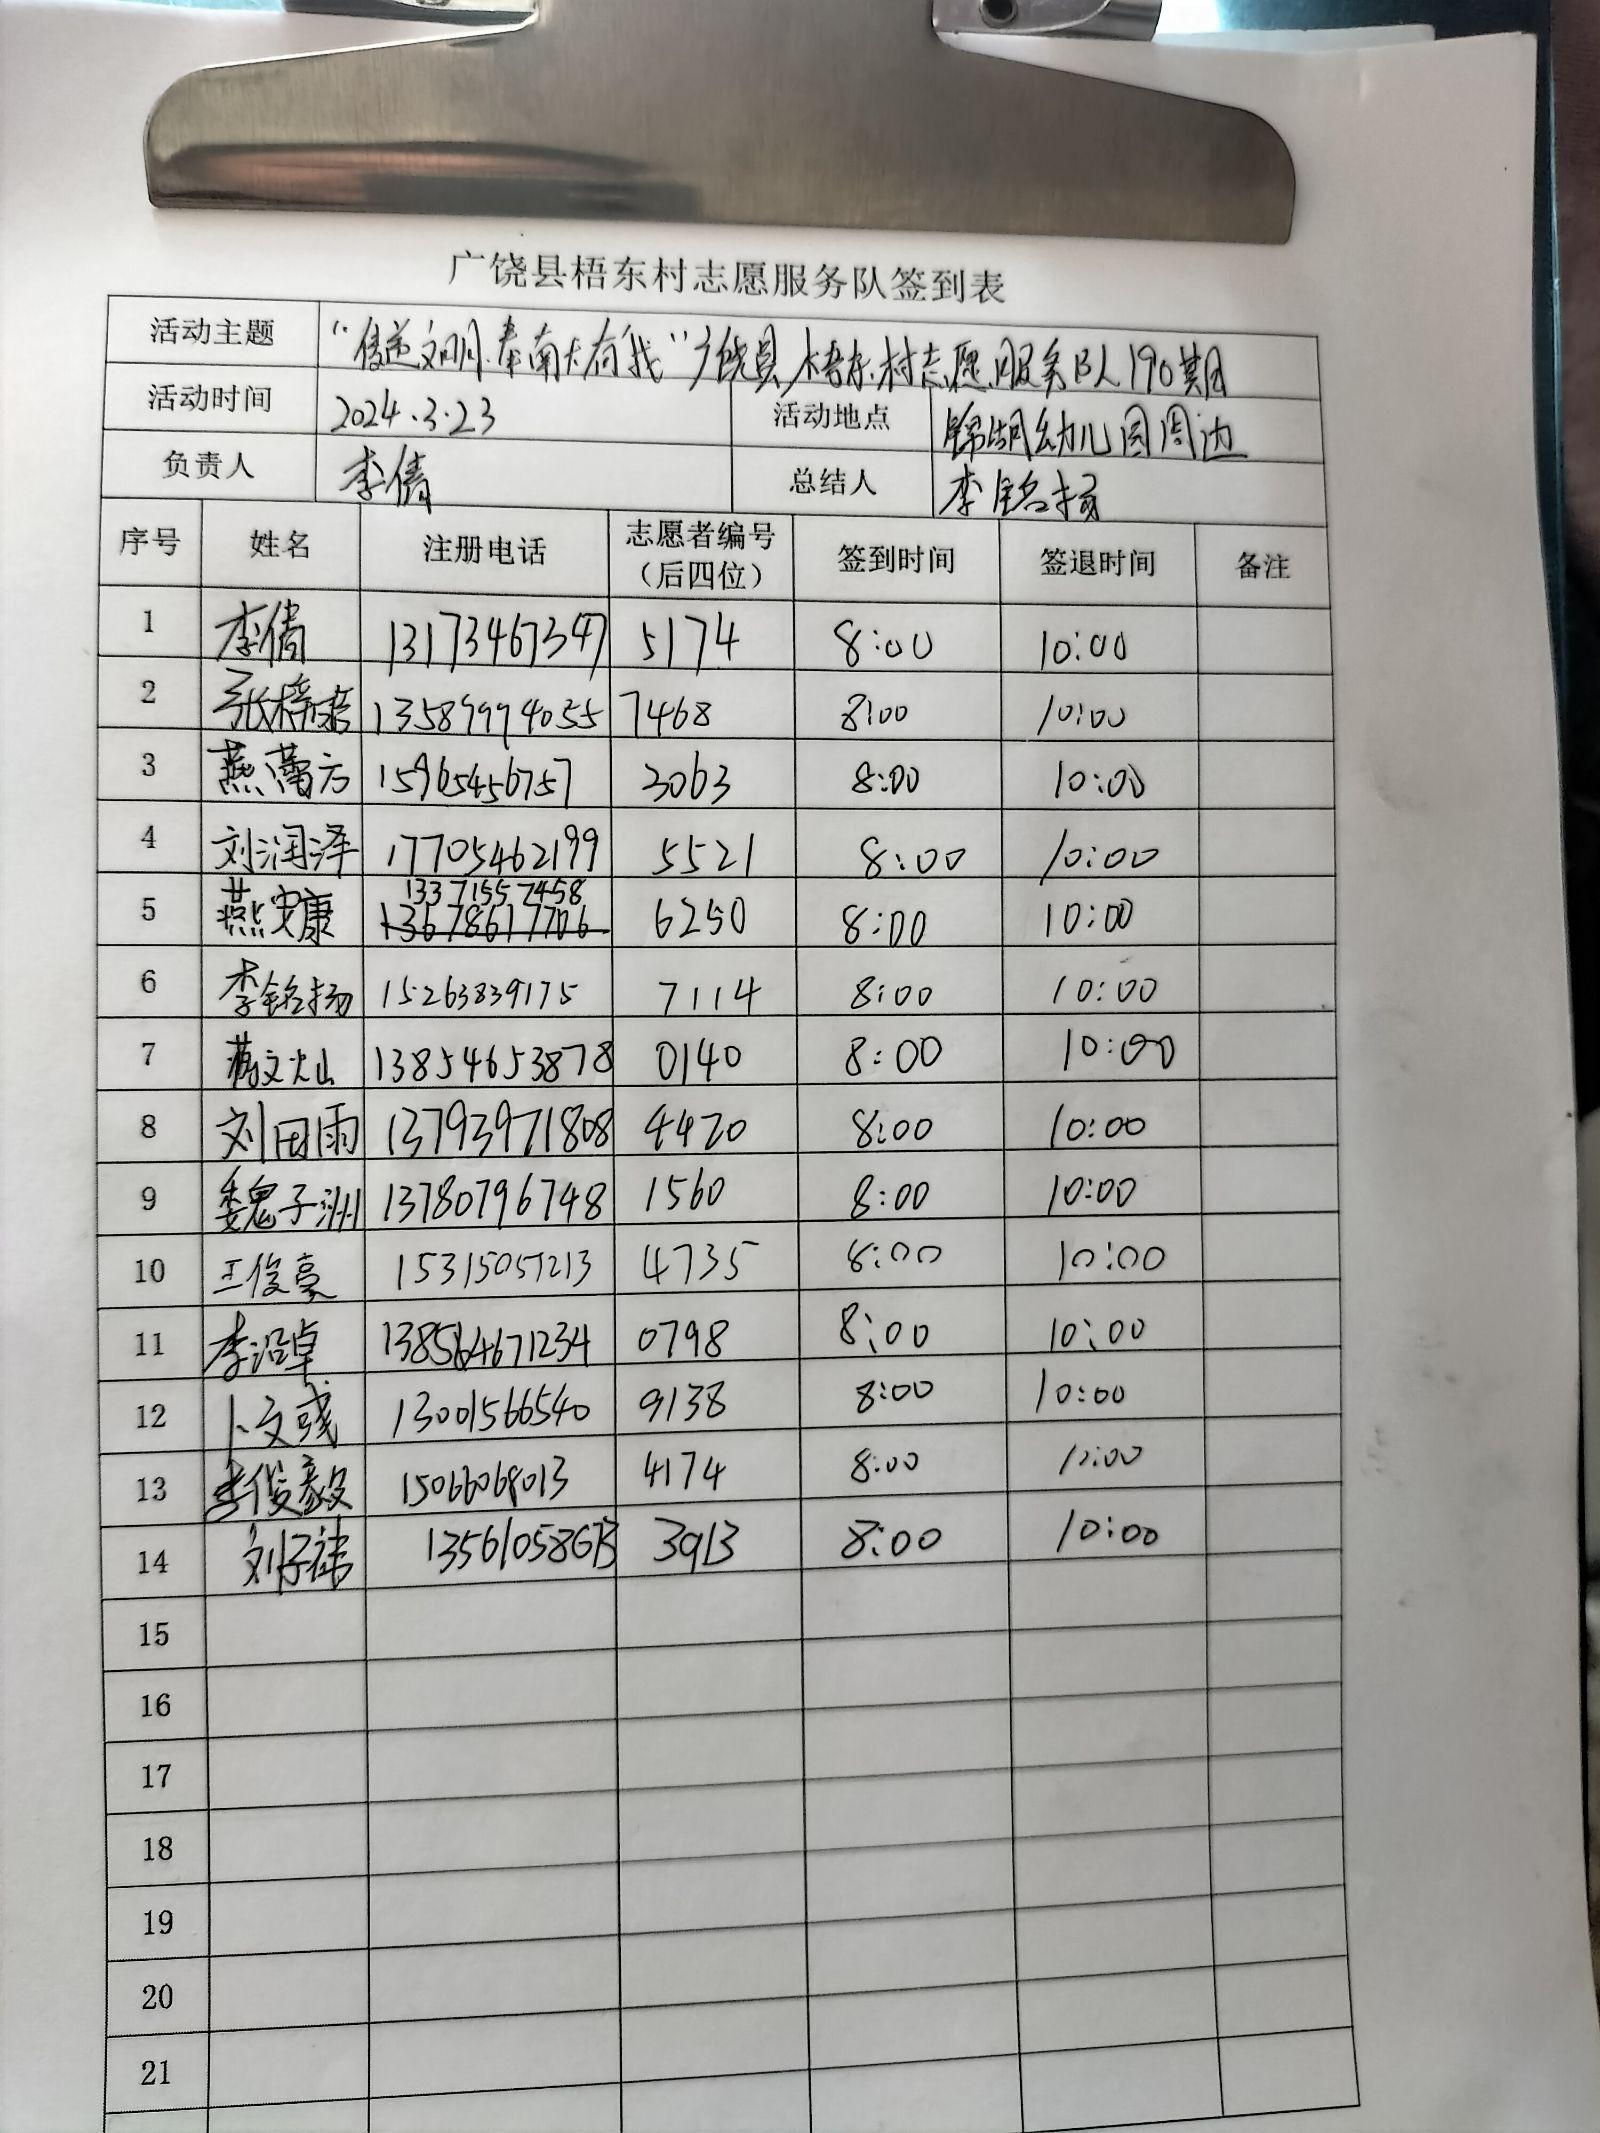 广饶县梧东村志愿服务队签到表
活动主题 “传递文明·奉献有我”广饶县梧东村志愿服务队190期
活动时间 2024.3.23 活动地点 锦湖幼儿园周边
负责人 李倩 总结人 李铭扬
序号 姓名 注册电话 志愿者编号（后四位） 签到时间 签退时间 备注
1 李倩 13173467347 5174 8:00 10:00
2 张梓 13589994055 7468 8:00 10:00
3 燕 方 15965456757 3063 8:00 10:00
4 刘润泽 17705462199 5521 8:00 10:00
5 燕安康 13371557458 6250 8:00 10:00
6 李铭扬 15263839175 7114 8:00 10:00
7 蒋文 13854653878 0140 8:00 10:00
8 刘田雨 13793971808 4420 8:00 10:00
9 魏子洲 13780796748 1560 8:00 10:00
10 王俊豪 15315051213 4735 8:00 10:00
11 李沿卓 0798 8:00 10:00
12 卜文彧 13001566540 9138 8:00 10:00
13 李俊毅 15066068013 4174 8:00 10:00
14 刘子祎 3913 8:00 10:00
15
16
17
18
19
20
21